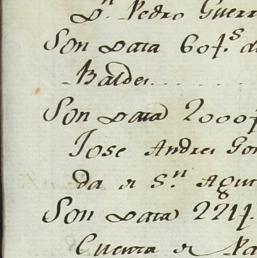 Dn. Pedro Guerr
Son para 60fs. d
Baldes
Son para 2000f
Jose Andres Gon
da a Sn. Agus
Son para 221f.
Cuenta a